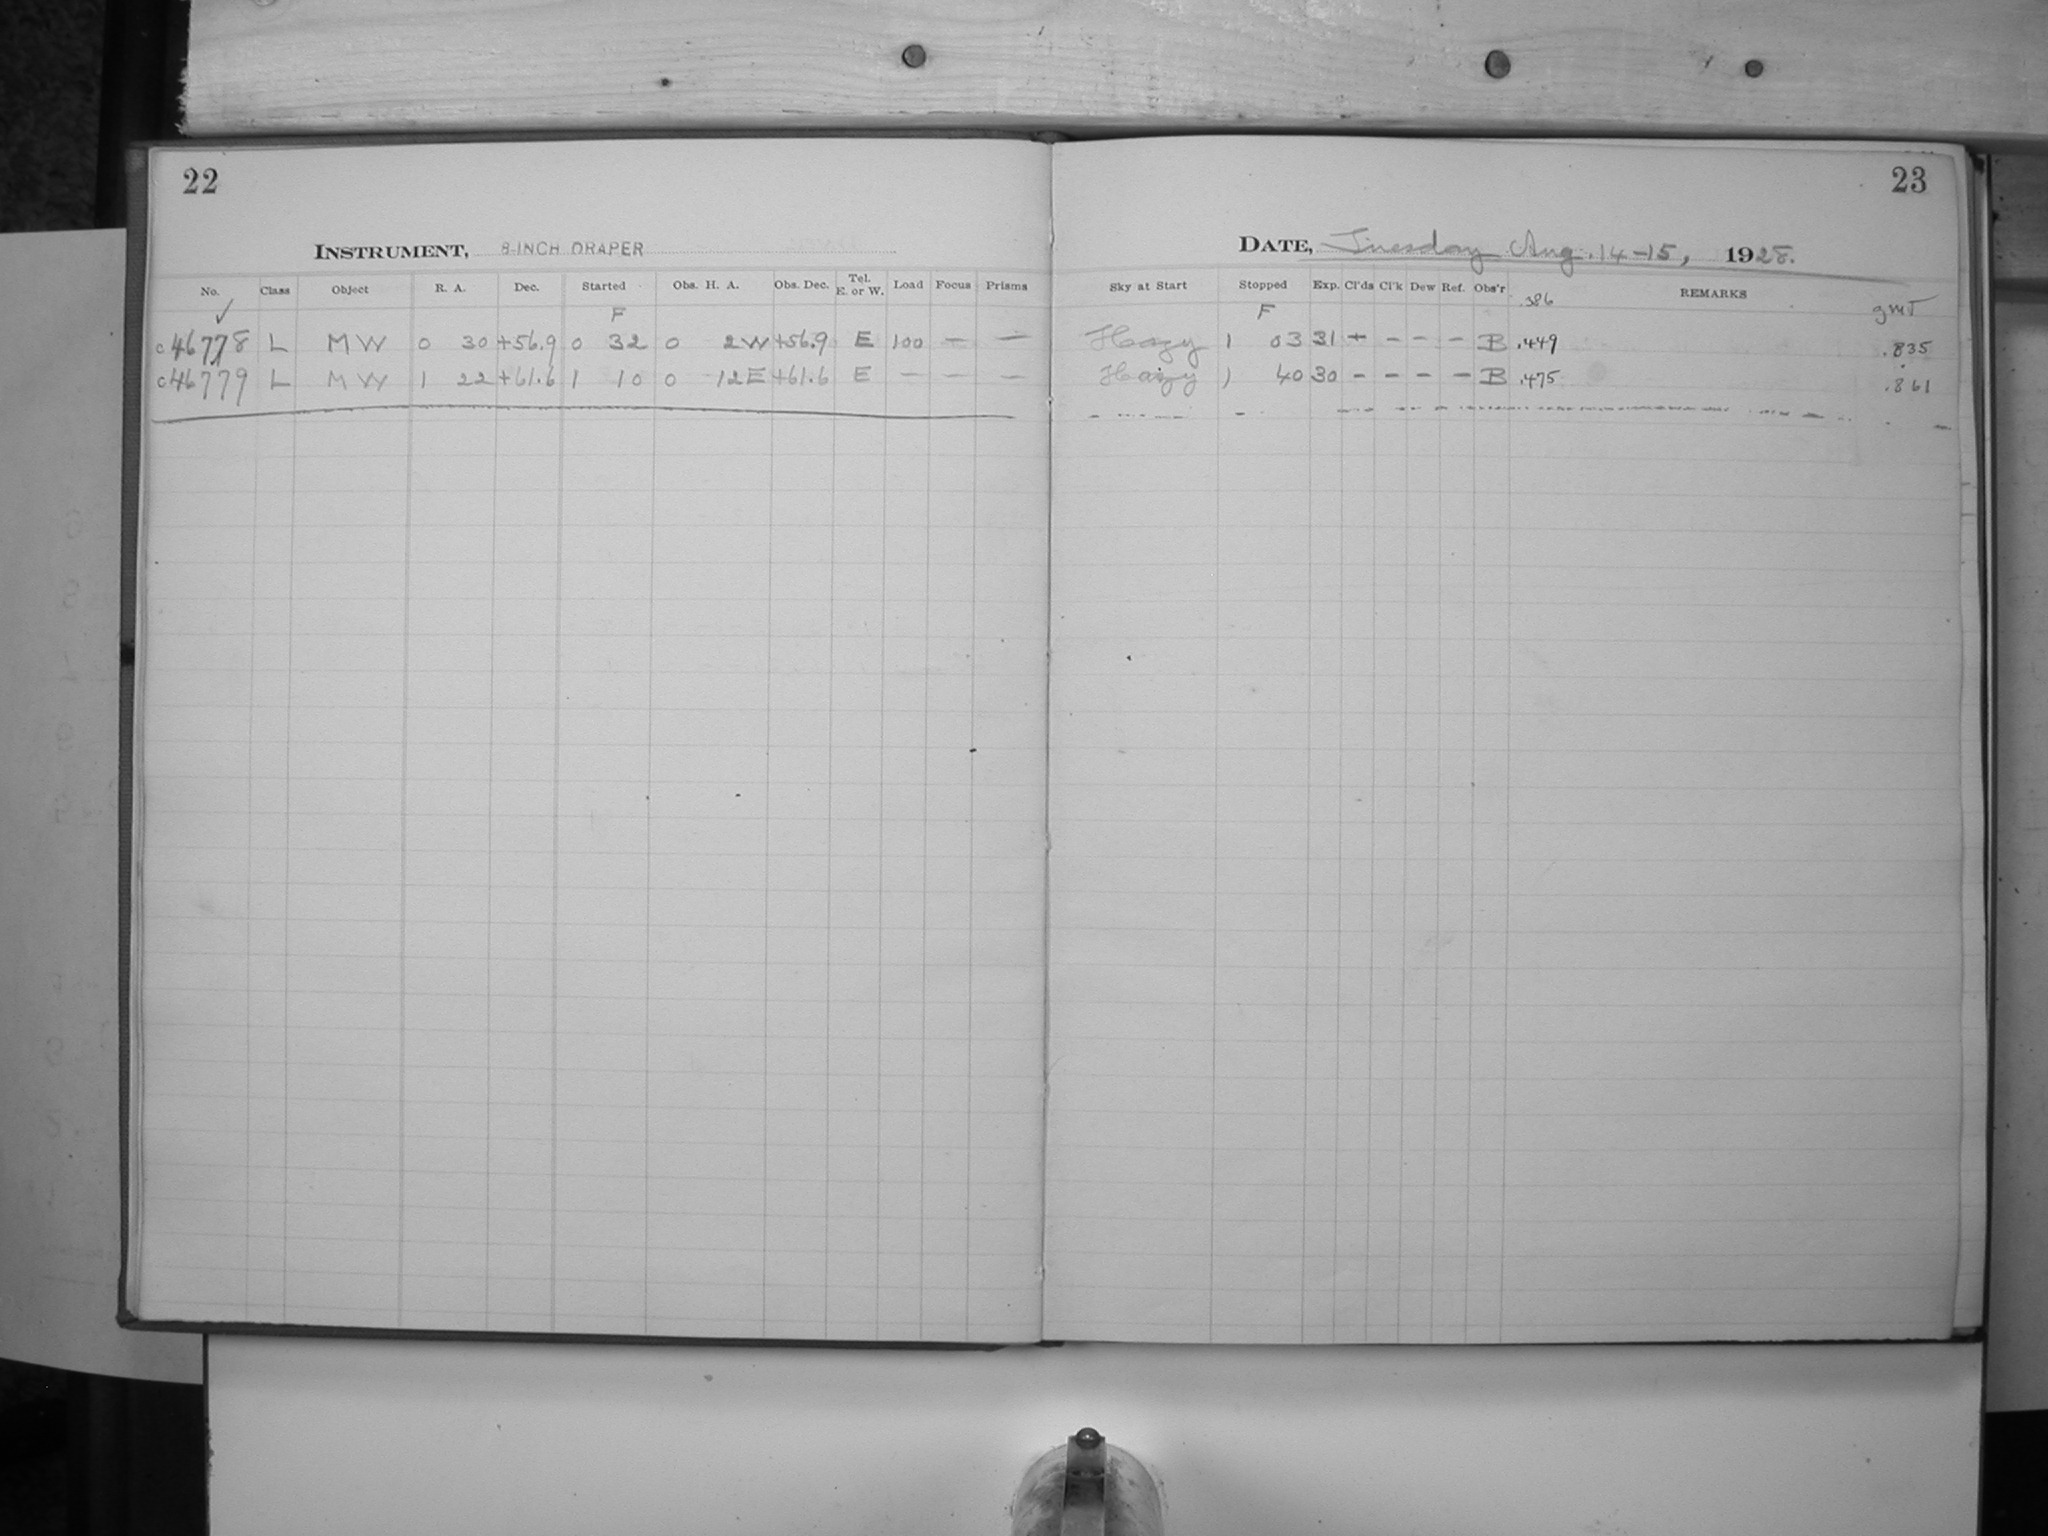 22
INSTRUMENT, 8-INCH DRAPER
No. Class Object R. A. Dec. Started Obs. H. A. Obs. Dec. Tel. E. or W. Load Focus Prisms
✓ F
c46778 L MW 0 30 +56.9 0 32 0 2W +56.9 E 100 — —
c46779 L MW 1 22 +61.6 1 10 0 12E +61.6 E — — —
23
DATE, Tuesday Aug. 14-15, 1928.
Sky at Start Stopped Exp. Cl'ds Cl'k Dew Ref. Obs'r REMARKS
F .386 gmT
Hazy 1 03 31 + - - - B .449 .835
Hazy 1 40 30 - - - - B .475 .861